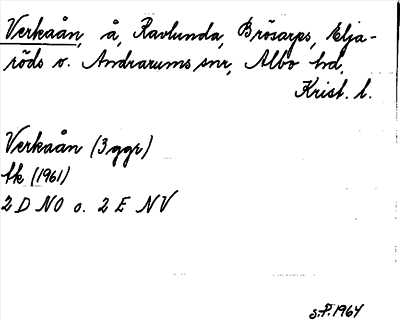 Verkaån, å, Ravlunda, Brösarps, Elja-
röds o. Andrarums snr, Albo hd,
Krist. l.
Verkaån (3 ggr)
tk (1961)
2 D NO o. 2 E NV
s.P. 1964